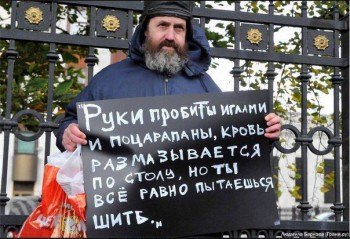 "Руки пробиты иглами
и поцарапаны, кровь
размазывается
по столу, но ты
всё равно пытаешься
шить."
Людмила Баркова (Грани.ру)